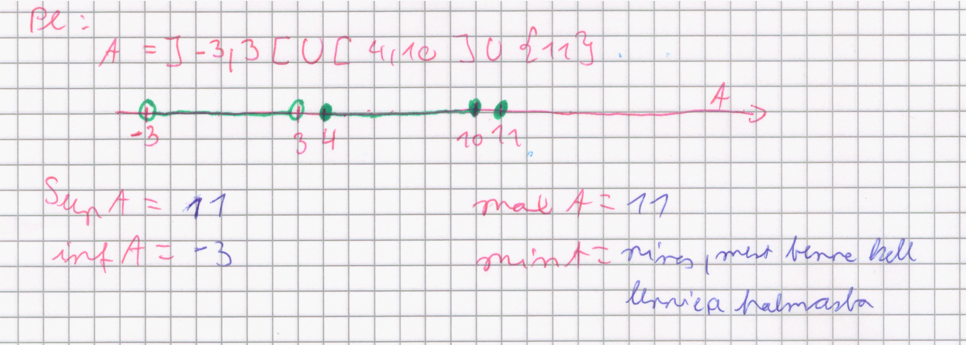 Pl:
A = ]-3,3[ ∪ [4,10] ∪ {11}
A
-3 3 4 10 11
Sup A = 11 max A = 11
inf A = -3 min A = nincs, mert benne kell
lennie a halmazba